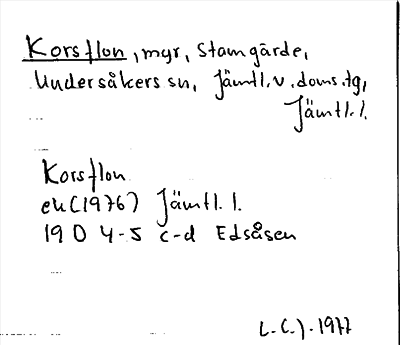 Korsflon, myr, Stamgärde,
Undersåkers sn, Jämtl. v. doms. tg,
Jämtl. l.
Korsflon
ek (1976) Jämtl. l.
19 D 4-5 c-d Edsåsen
L. C. J. 1977